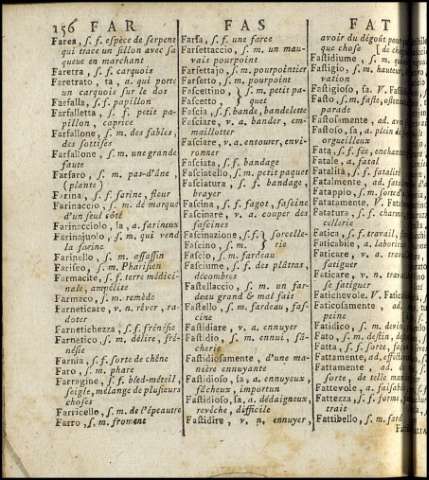 156 FAR FAS FAT
Farea, s. f. espèce de serpent
qui trace un sillon avec sa
queue en marchant
Faretra, s. f. carquois
Faretrato, ta, a. qui porte
un carquois sur le dos
Farfalla, s. f. papillon
Farfalletta, s. f. petit pa-
pillon, caprice
Farfallone, s. m. des fables,
des sottises
Farfallone, s. m. une grande
faute
Farfaro, s. m. pas-d'âne,
(plante)
Farina, s. f. farine, fleur
Farinaccio, s. m. de marqué
d'un seul côté
Farinacciolo, la, a. farineux
Farinajuolo, s. m. qui vend
la farine
Farinello, s. m. assassin
Fariseo, s. m. Pharisien
Farmacite, s. f. terre médici-
nale, ampélite
Farmaco, s. m. remède
Farneticare, v. n. rêver, ra-
doter
Farnetichezza, s. f. frénésie
Farnetico, s. m. délire, fré-
nésie
Farnia, s. f. sorte de chêne
Faro, s. m. phare
Farragine, s. f. bled-méteil,
seigle, mélange de plusieurs
choses
Farricello, s. m. de l'épeautre
Farro, s. m. froment
Farsa, s. f. une farce
Farsettaccio, s. m. un mau-
vais pourpoint
Farsettajo, s. m. pourpointier
Farsetto, s. m. pourpoint
Fascettino, } s. m. petit pa-
Fascetto, } quet
Fascia, s. f. bande, bandelette
Fasciare, v. a. bander, em-
maillotter
Fasciare, v. a. entourer, envi-
ronner
Fasciata, s. f. bandage
Fasciatello, s. m. petit paquet
Fasciatura, s. f. bandage,
brayer
Fascina, s. f. fagot, fascine
Fascinare, v. a. couper des
fascines
Fascinazione, s. f. } sorcelle-
Fascino, s. m. } rie
Fascio, s. m. fardeau
Fasciume, s. f. des plâtras,
décombres
Fastellaccio, s. m. un far-
deau grand & mal fait
Fastello, s. m. fardeau, fas-
cine
Fastidiare, v. a. ennuyer
Fastidio, s. m. ennui, fâ-
cherie
Fastidiosamente, d'une ma-
nière ennuyante
Fastidioso, sa, a. ennuyeux,
fâcheux, importun
Fastidioso, sa, a. dédaigneux,
revêche, difficile
Fastidire, v. n. ennuyer,
avoir du dégoût pour
que chose
Fastidiume, s. m.
Fastigio, s. m. hauteur,
vation
Fastigioso, sa. V.
Fasto, s. m. faste,
parade
Fastosamente, ad.
Fastoso, sa, a. plein de
orgueilleux
Fata, s. f. fée, enchant
Fatale, a. fatal
Fatalità, s. f. fatalité
Fatalmente, ad.
Fatappio, s. m. sorte
Fatatamente. V.
Fatatura, s. f.
cellerie
Fatica, s. f. travail,
Faticabile, a.
Faticare, v. a.
fatiguer
Faticare, v. n.
se fatiguer
Fatichevole. V.
Faticosamente, ad.
peine
Fatidico, s. m.
Fato, s. m. destin,
Fatta, s. f. sorte,
Fattamente, ad.
Fattamente, ad.
sorte, de telle
Fattevole, a.
Fattezza, s. f.
trait
Fattibello, s. m.